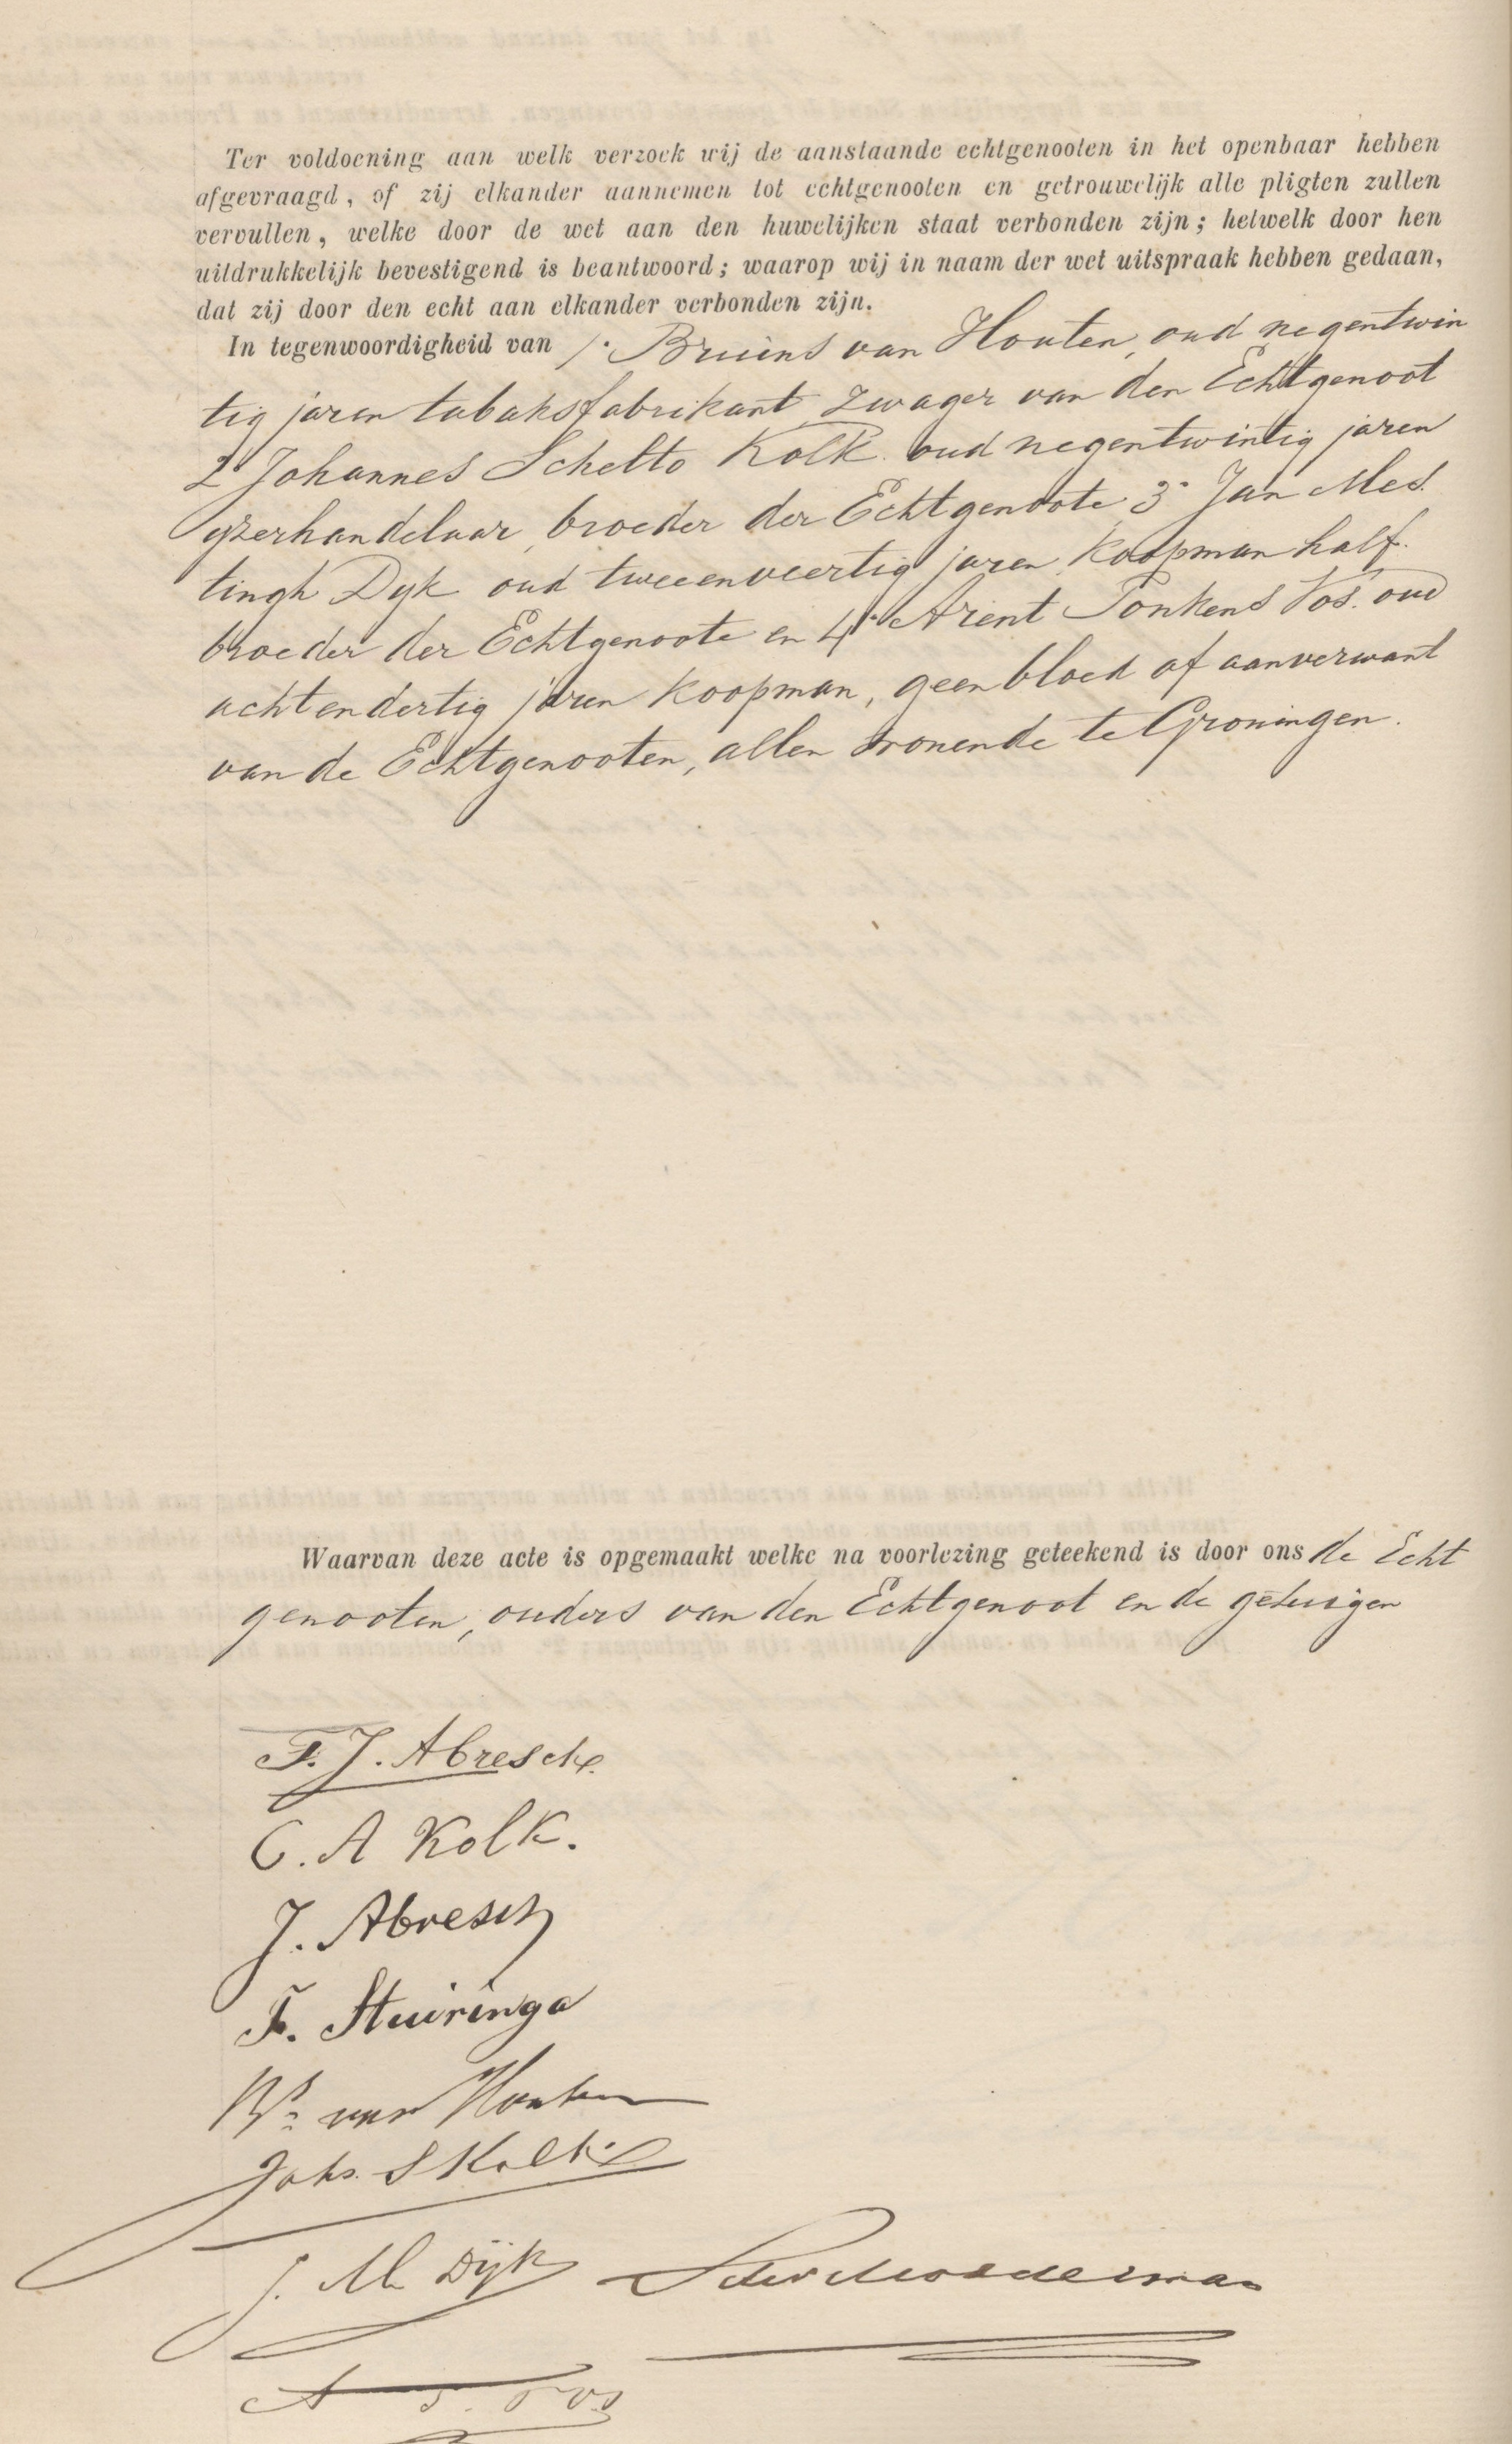 Ter voldoening aan welk verzoek wij de aanstaande echtgenooten in het openbaar hebben
afgevraagd, of zij elkander aannemen tot echtgenooten en getrouwelijk alle pligten zullen
vervullen, welke door de wet aan den huwelijken staat verbonden zijn; hetwelk door hen
uitdrukkelijk bevestigend is beantwoord; waarop wij in naam der wet uitspraak hebben gedaan,
dat zij door den echt aan elkander verbonden zijn.
In tegenwoordigheid van 1. Bruins van Houten, oud negentwin
tig jaren tabaksfabrikant, zwager van den Echtgenoot
2 Johannes Schelto Kolk oud negentwintig jaren
yzerhandelaar, broeder der Echtgenoote 3 Jan Mes
tingh Dyk oud tweeenveertig jaren koopman half
broeder der Echtgenoote en 4 Arent Tonkens Vos oud
achtendertig jaren koopman, geen bloed of aanverwant
van de Echtgenooten, allen wonende te Groningen.
Waarvan deze acte is opgemaakt welke na voorlezing geteekend is door ons de Echt
genooten, ouders van den Echtgenoot en de getuigen
F. J. Abresch
C. A Kolk.
J. Abresch
F. Stuiringa
Bs van Houten
Johs. S Kolk
J. M Dijk
A T Vos